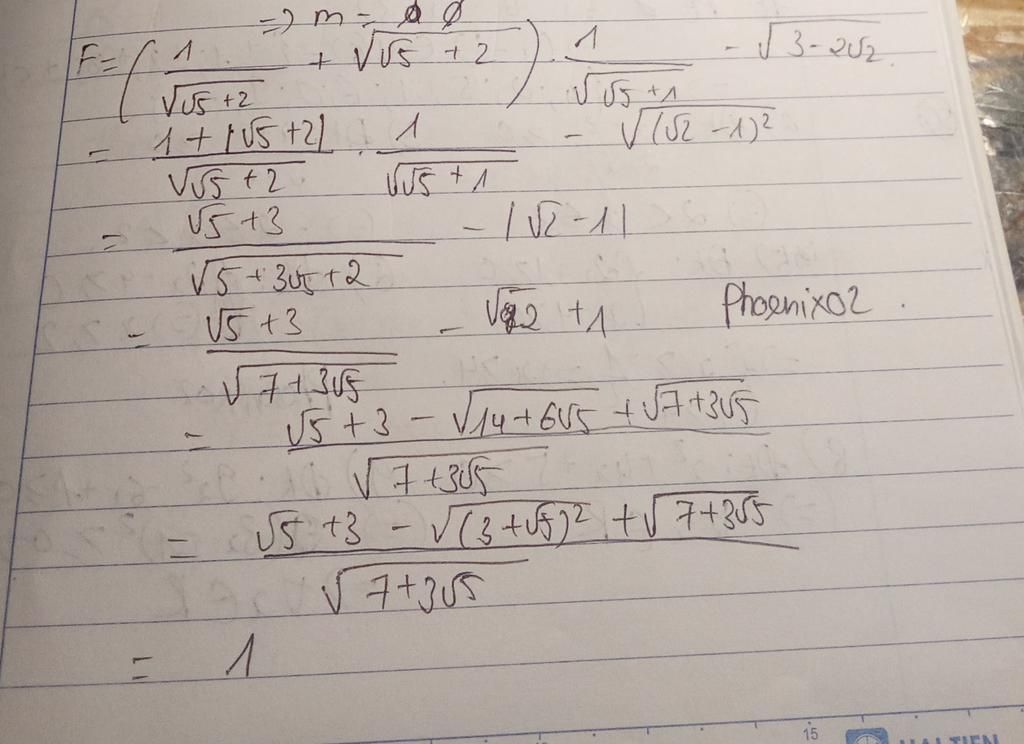 => m = 0
F = (1/√(√5+2) + √(√5+2)) · 1/√(√5+1) - √(3-2√2)
= (1+|√5+2|)/√(√5+2) · 1/√(√5+1) - √((√2-1)²)
= (√5+3)/√(5+3√5+2) - |√2-1|
= (√5+3)/√(7+3√5) - √2 + 1 Phoenix02.
= (√5+3-√(14+6√5)+√(7+3√5))/√(7+3√5)
= (√5+3-√((3+√5)²)+√(7+3√5))/√(7+3√5)
= 1
15